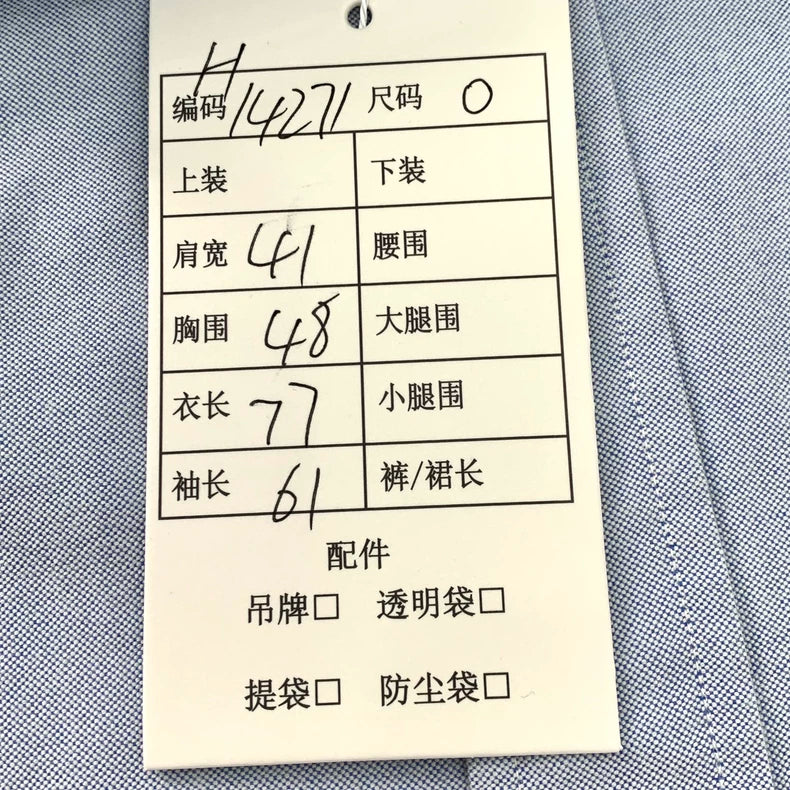 编码 H14271 尺码 0
上装 下装
肩宽 41 腰围
胸围 48 大腿围
衣长 77 小腿围
袖长 61 裤/裙长
配件
吊牌□ 透明袋□
提袋□ 防尘袋□